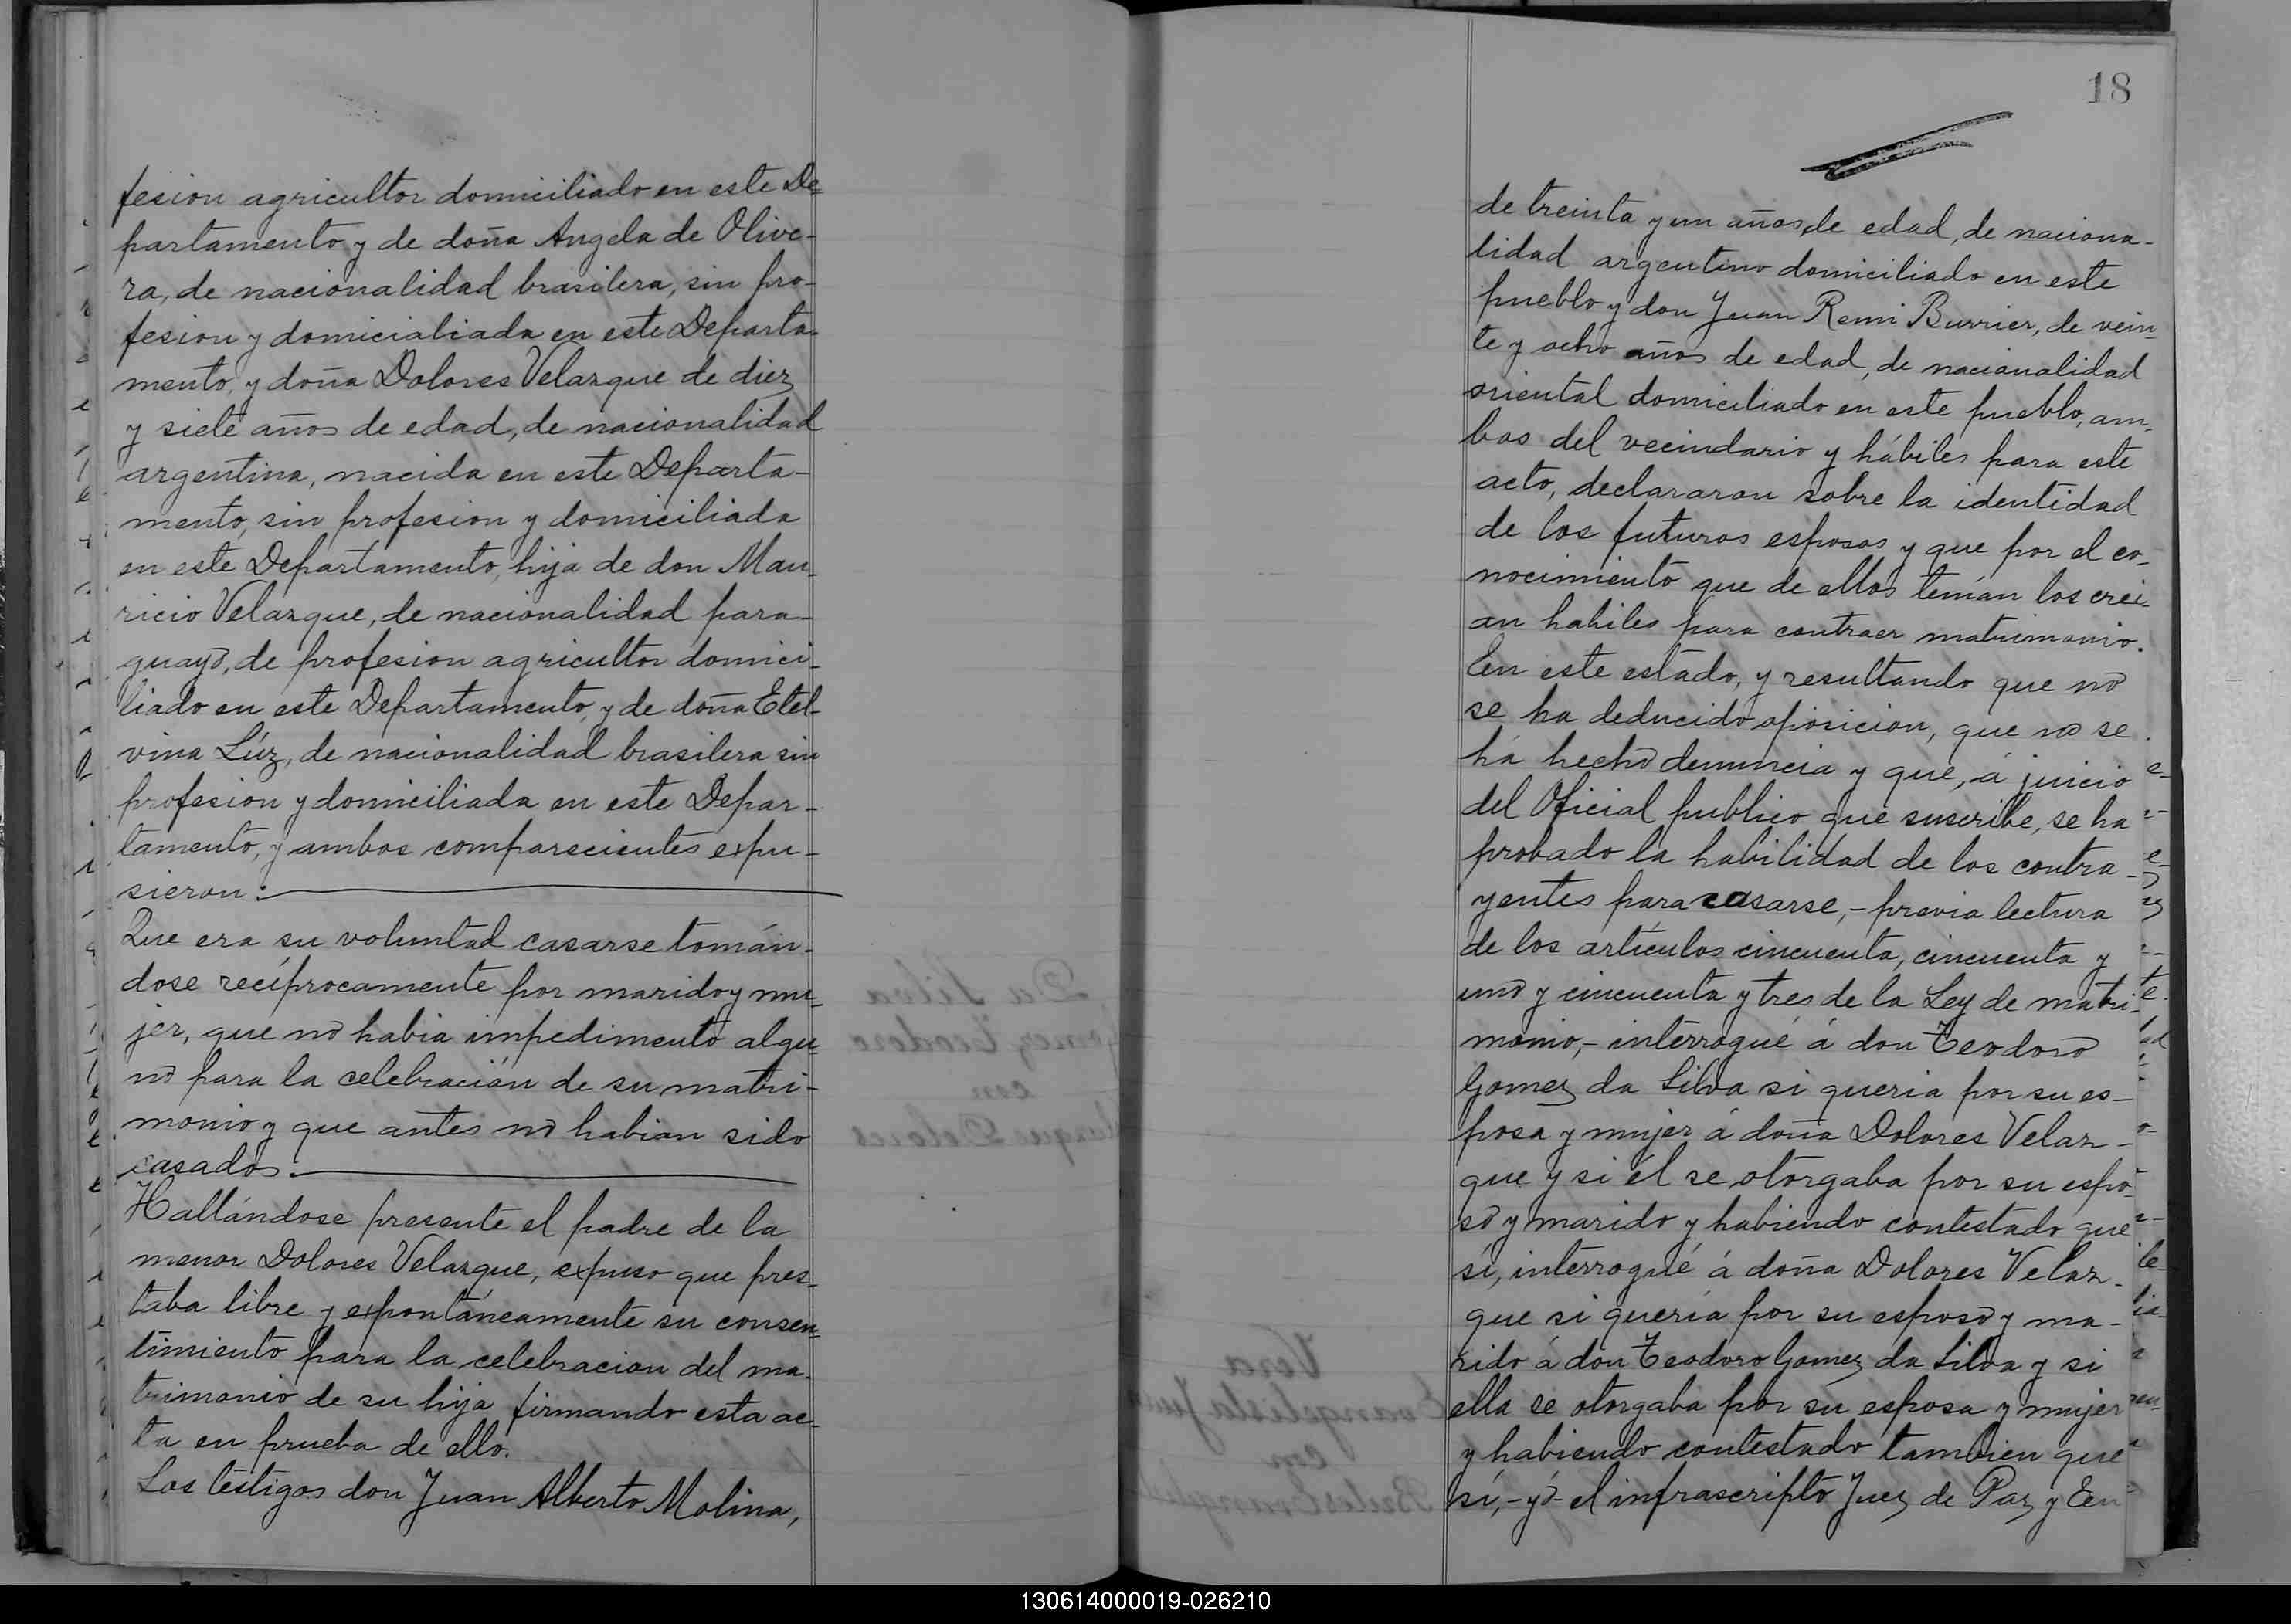 fesion agricultor domiciliado en este De=
partamento y de doña Angela de Olive-
ra, de nacionalidad brasilera, sin pro-
fesion y domicialiada en este Departa-
mento, y doña Dolores Velazque de diez
y siete años de edad, de nacionalidad
argentina, nacida en este Departa-
mento, sin profesion y domiciliada
en este Departamento, hija de don Mau-
ricio Velazque, de nacionalidad para-
guayo, de profesion agricultor domici-
liado en este Departamento, y de doña Etel-
vina Lúz, de nacionalidad brasilera sin
profesion y domiciliada en este Depar-
tamento, y ambos comparecientes expu-
sieron:
Que era su voluntad casarse tomán-
dose recíprocamente por marido y mu-
jer, que no habia impedimento algu-
no para la celebración de su matri-
monio y que antes no habian sido
casados.
Hallándose presente el padre de la
menor Dolores Velazque, expuso que pres-
taba libre y expontáneamente su consen-
timiento para la celebracion del ma-
trimonio de su hija firmando esta ac-
ta en prueba de ello.
Los testigos don Juan Alberto Molina,
18
de treinta y un años, de edad, de naciona-
lidad argentino domiciliado en este
pueblo y don Juan Remi Burrier, de vein-
te y ocho años de edad, de nacionalidad
oriental domiciliado en este pueblo, am-
bos del vecindario y hábiles para este
acto, declararon sobre la identidad
de los futuros esposos y que por el co-
nocimiento que de ellos tenían los crei-
an habiles para contraer matrimonio.
En este estado, y resultando que no
se ha deducido oposicion, que no se
há hecho denuncia y que, á juicio
del Oficial publico que suscribe, se ha
probado la habilidad de los contra-
yentes para casarse,- previa lectura
de los artículos cincuenta, cincuenta y
uno y cincuenta y tres de la Ley de matri-
monio,- interrogué á don Teodoro
Gomez da Silva si queria por su es-
posa y mujer á doña Dolores Velaz-
que y si él se otorgaba por su espo-
so y marido y habiendo contestado que
sí, interrogué á doña Dolores Velaz-
que si quería por su esposo y ma-
rido á don Teodoro Gomez da Silva y si
ella se otorgaba por su esposa y mujer
y habiendo contestado tambien que
sí,- yó- el infrascripto Juez de Paz y En
130614000019-026210